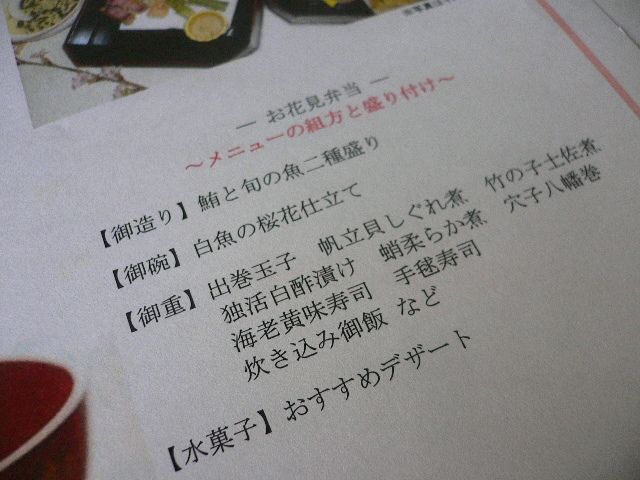 ― お花見弁当 ―
～メニューの組方と盛り付け～
【御造り】鮪と旬の魚二種盛り
【御碗】白魚の桜花仕立て
【御重】出巻玉子 帆立貝しぐれ煮 竹の子土佐煮
独活白酢漬け 蛸柔らか煮 穴子八幡巻
海老黄味寿司 手毬寿司
炊き込み御飯 など
【水菓子】おすすめデザート